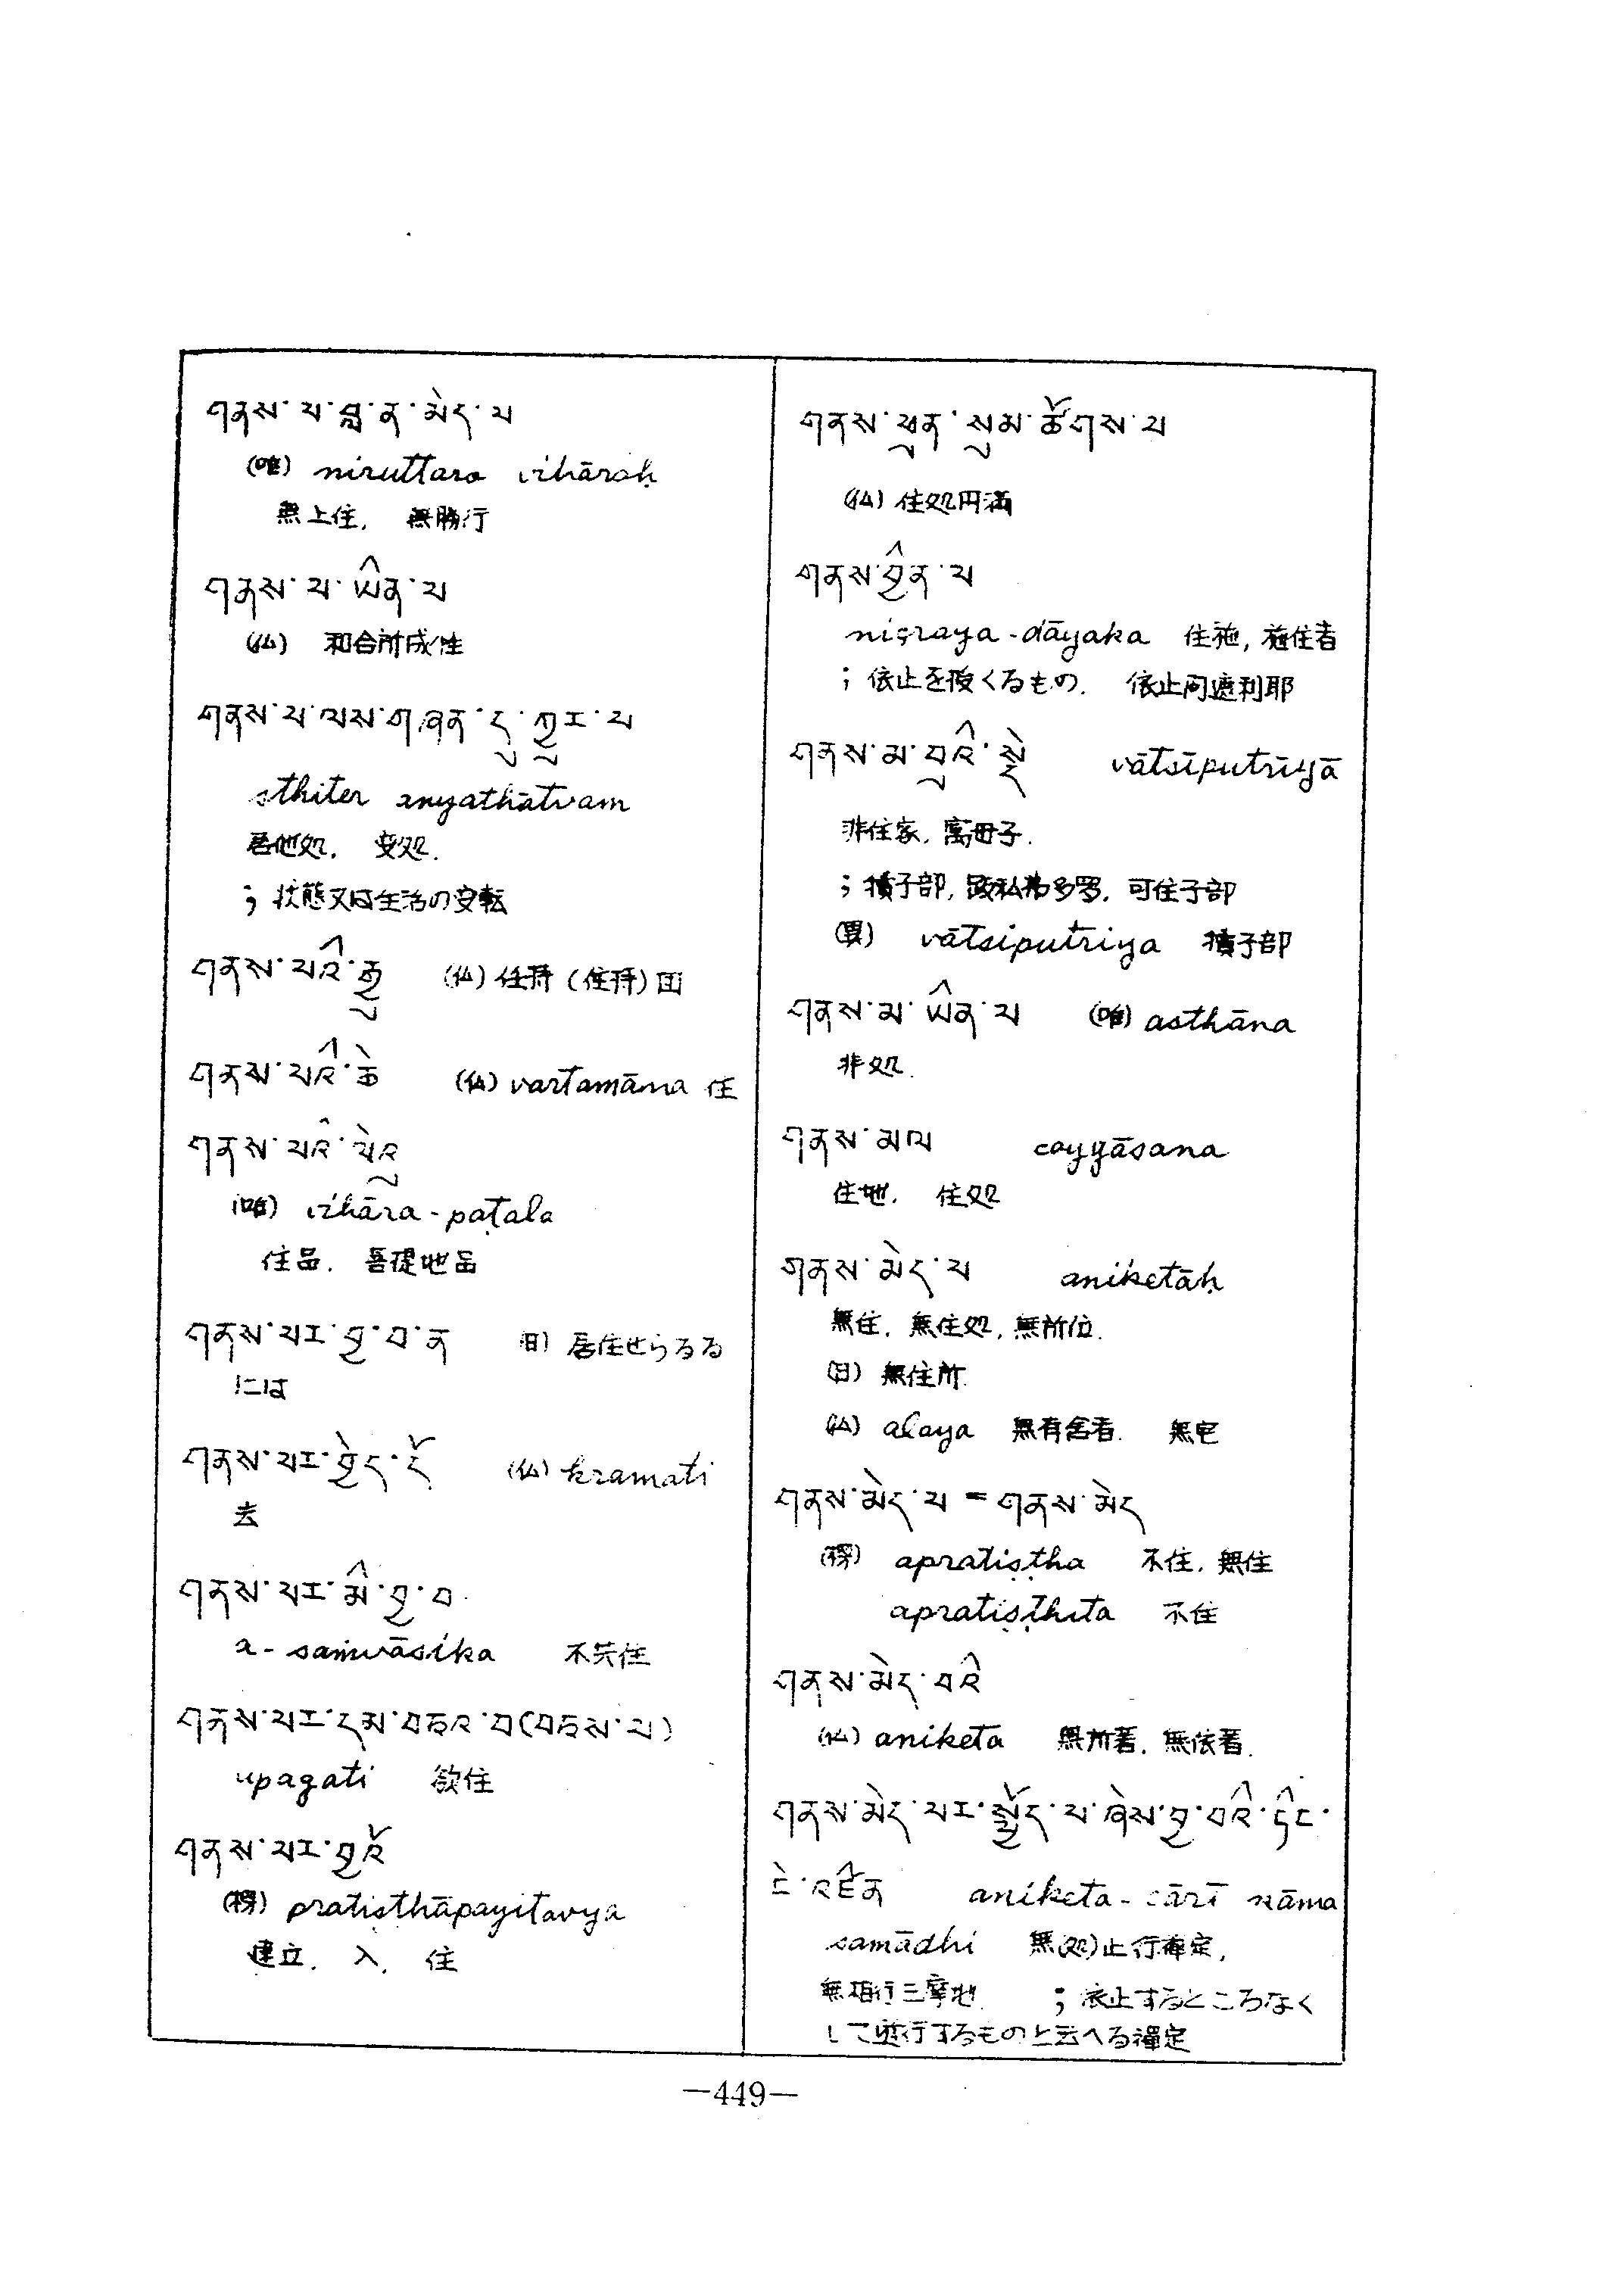 གནས་པ་བླ་ན་མེད་པ
(唯) niruttara vihāraḥ
無上住, 無勝行
གནས་པ་ཡིན་པ
(仏) 和合所成性
གནས་པ་ལས་གཞན་དུ་གྱུར་པ
sthiter anyathātvam
居他処, 変処.
; 状態又は生活の変転
གནས་པའི་རྒྱུ (仏) 任持 (住持) 因
གནས་པའི་ཚེ (仏) vartamāna 住
གནས་པའི་ལེའུ
(唯) vihāra-paṭala
住品. 菩提地品
གནས་པར་བྱ་བ་ན (旧) 居住せらるる
には
གནས་པར་བྱེད་དོ (仏) kramati
去
གནས་པར་མི་བྱ་བ
a-saṁvāsika 不共住
གནས་པར་དམ་བཅའ་བ(བཅས་པ)
upagati 欲住
གནས་པར་བྱའོ
(楞) pratiṣthāpayitavya
建立. 入. 住
གནས་ཕུན་སུམ་ཚོགས་པ
(仏) 住処円満
གནས་བྱིན་པ
niçraya-dāyaka 住施, 施住者
; 依止を授くるもの. 依止阿遮利耶
གནས་མ་བུའི་སྡེ vātsīputrīyā
非住家, 窩毋子.
; 犢子部, 跋私弗多罗, 可住子部
(異) vātsiputriya 犢子部
གནས་མ་ཡིན་པ (唯) asthāna
非処.
གནས་མལ çayyāsana
住地. 住処
གནས་མེད་པ aniketāḥ
無住, 無住処, 無所位.
(旧) 無住所.
(仏) alaya 無有舍者. 無宅
གནས་མེད་པ = གནས་མེད
(楞) apratiṣṭha 不住, 無住
apratiṣṭhita 不住
གནས་མེད་པའི
(仏) aniketa 無所著, 無依著.
གནས་མེད་པར་སྤྱོད་པ་ཞེས་བྱ་བའི་ཏིང་
ངེ་འཛིན aniketa-cārī nāma
samādhi 無(処)止行禅定,
無栖行三摩地. ; 依止するところなく
して遊行するものと云へる禅定
—449—